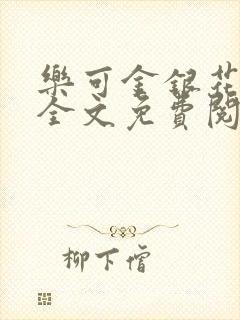 樂可金銀花
全文免費閱
柳下惛